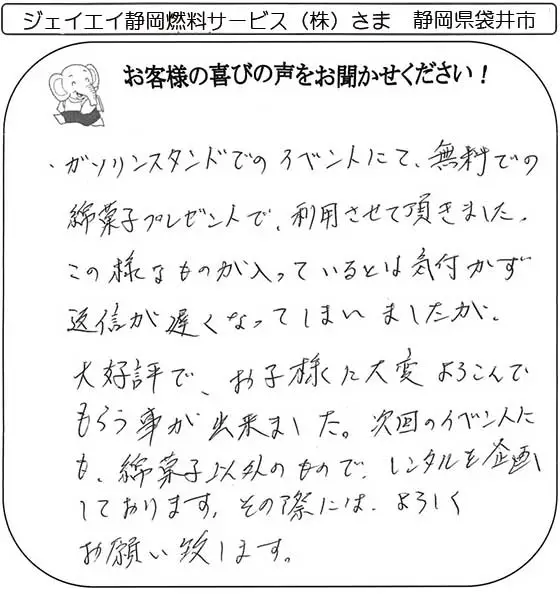 ジェイエイ静岡燃料サービス（株）さま　静岡県袋井市
お客様の喜びの声をお聞かせください！
・ガソリンスタンドでのイベントにて、無料での
綿菓子プレゼントで、利用させて頂きました。
この様なものが入っているとは気付かず
返信が遅くなってしまいましたが、
大好評で、お子様に大変よろこんで
もらう事が出来ました。次回のイベントに
も、綿菓子以外のもので、レンタルを企画
しております。その際には、よろしく
お願い致します。